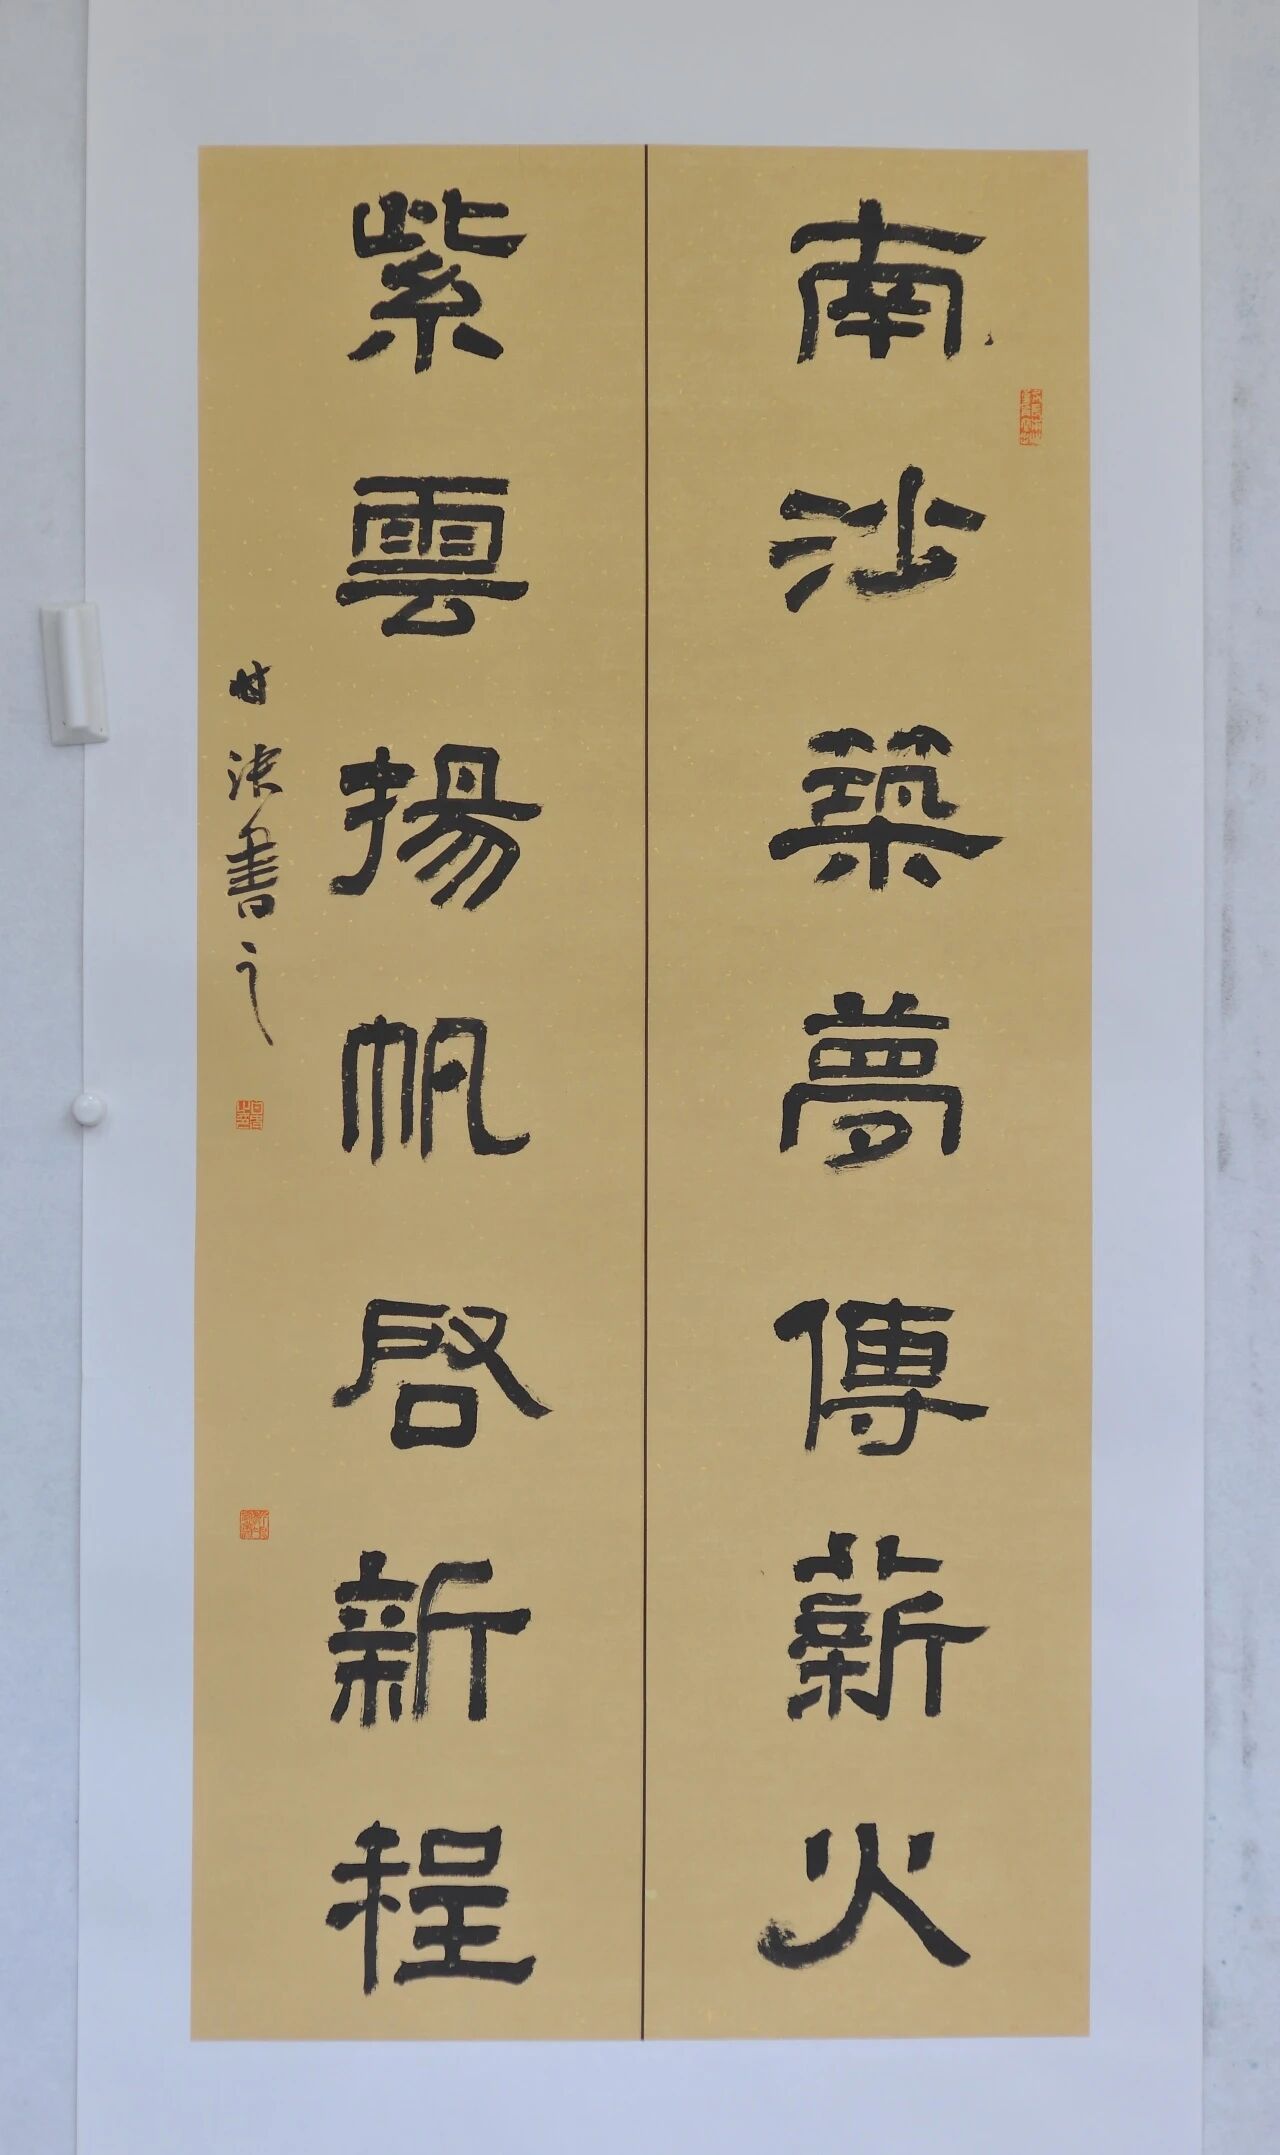 南沙築夢傳薪火
紫雲揚帆啓新程
書之